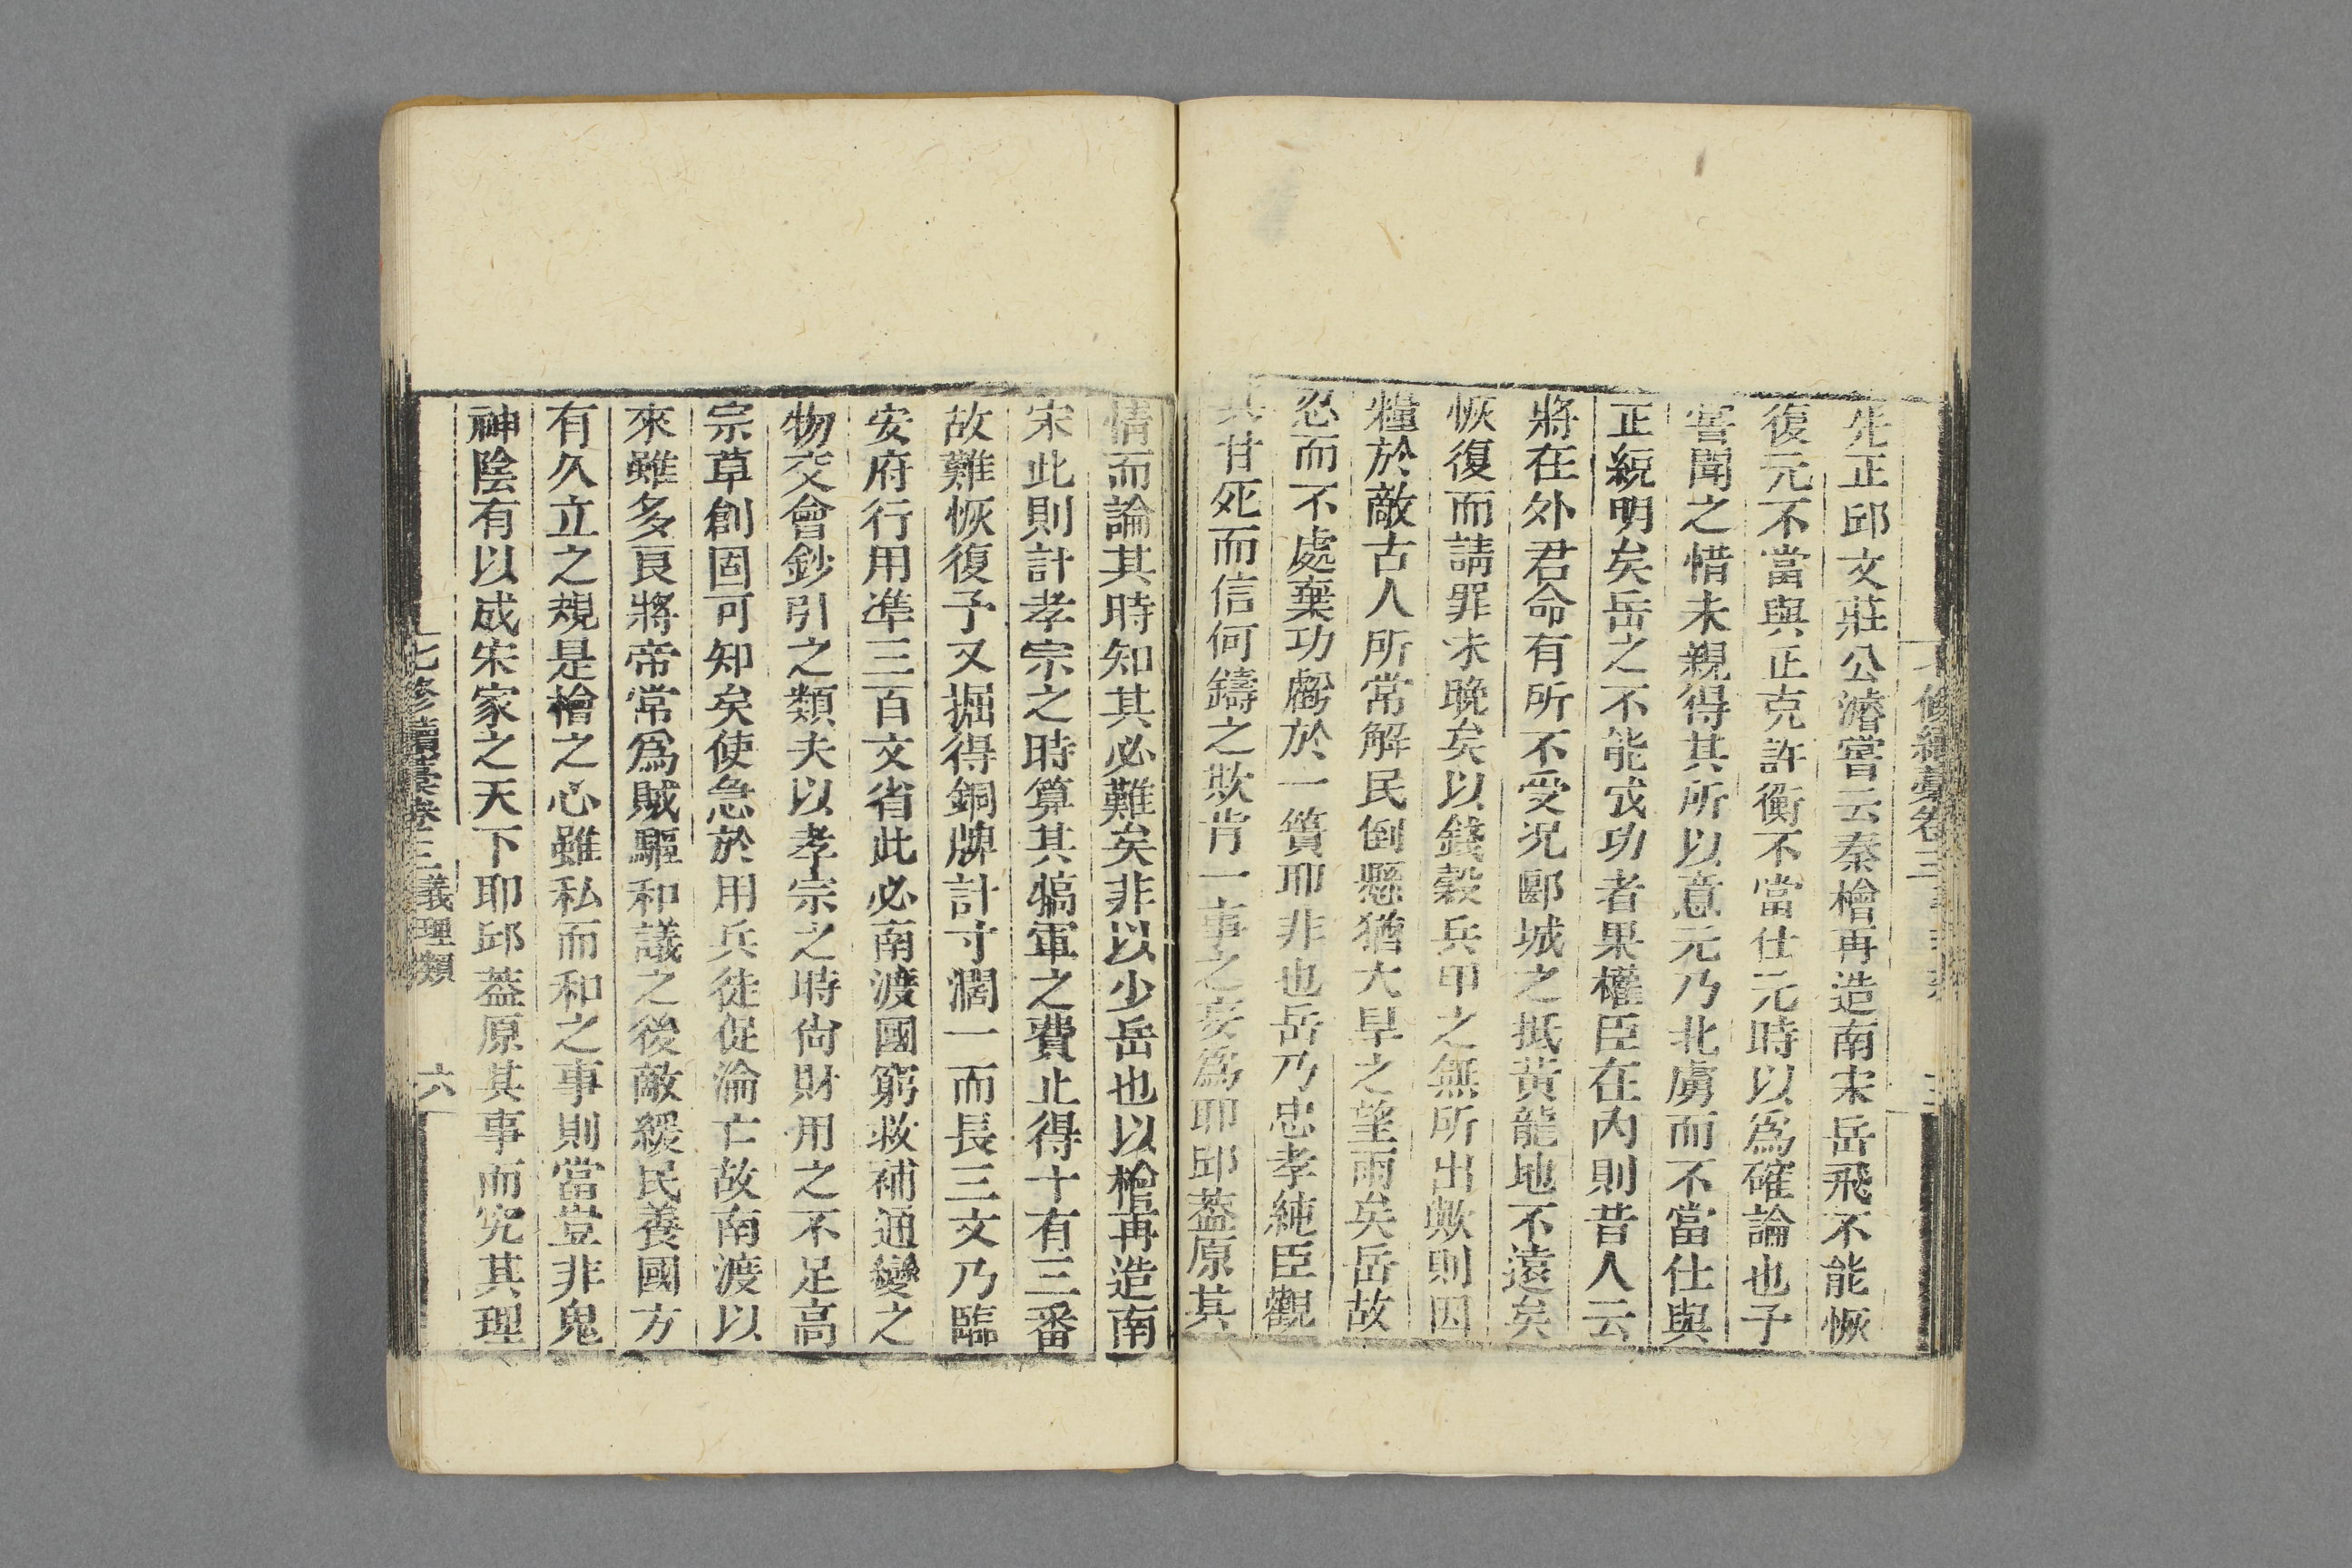 先正邱文莊公濬嘗云秦檜再造南宋岳飛不能恢
復元不當與正克許衡不當仕元時以爲確論也予
嘗聞之惜未親得其所以意元乃北虜而不當仕與
正綂明矣岳之不能成功者果權臣在內則昔人云
將在外君命有所不受况郾城之抵黃龍地不遠矣
恢復而請罪未晚矣以錢穀兵甲之無所出歟則因
糧於敵古人所常解民倒懸猶大旱之望雨矣岳故
忍而不處棄功虧於一簣耶非也岳乃忠孝純臣觀
其甘死而信何鑄之欺肯一事之妄爲耶邱葢原其
情而論其時知其必難矣非以少岳也以檜再造南
宋此則計孝宗之時算其犒軍之費止得十有三番
故難恢復予又掘得銅牌計寸濶一而長三文乃臨
安府行用凖三百文省此必南渡國窮救補通變之
物交會鈔引之類夫以孝宗之時尙財用之不足高
宗草創固可知矣使急於用兵徒促淪亡故南渡以
來雖多良將帝常爲賊驅和議之後敵緩民養國方
有久立之規是檜之心雖私而和之事則當豈非鬼
神陰有以成宋家之天下耶邱葢原其事而究其理
七修續藁卷三 義理類 六